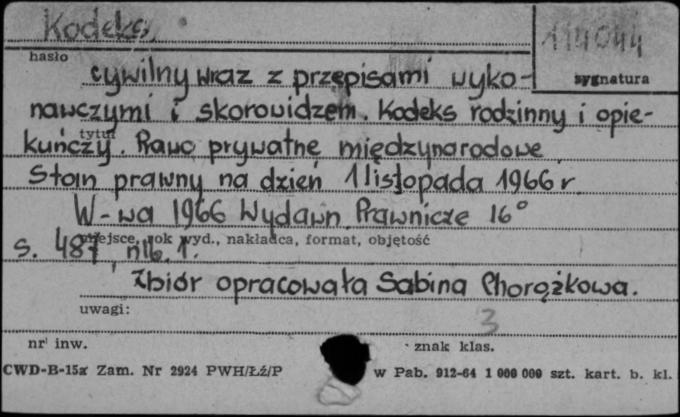 Kodeks
114044
hasło
sygnatura
cywilny wraz z przepisami wyko-
nawczymi i skorowidzem. Kodeks rodzinny i opie-
kuńczy. Rawo prywatne międzynarodowe
tytuł
Stan prawny na dzień 1 listopada 1966 r.
W-wa 1966 Wydawn. Prawnicze 16°
miejsce, rok wyd., nakładca, format, objętość
s. 487, nlb. 1.
Zbiór opracowała Sabina Chorążkowa.
uwagi:
3
nr inw.
znak klas.
CWD-B-15a Zam. Nr 2924 PWH/Łź/P w Pab. 912-64 1 000 000 szt. kart. b. kl.